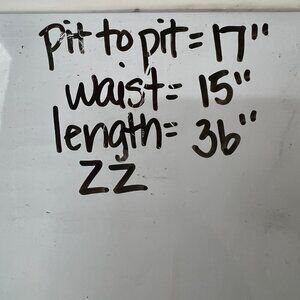 pit to pit = 17"
waist = 15"
length = 36"
ZZ